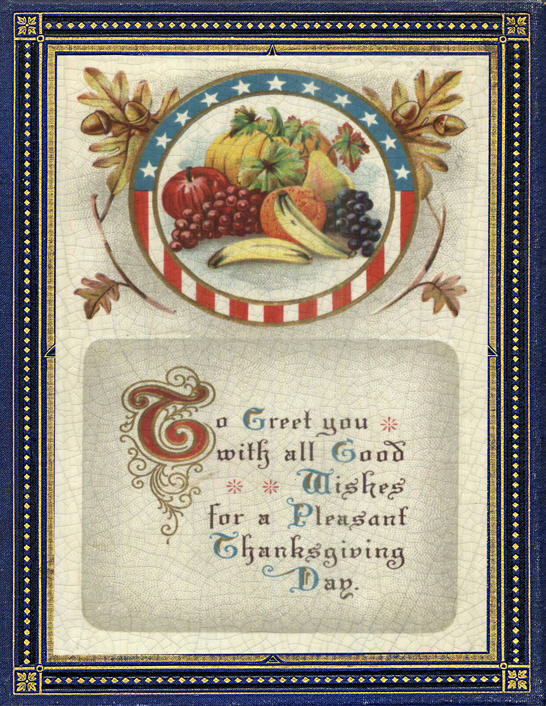 To Greet you
with all Good
Wishes
for a Pleasant
Thanksgiving
Day.